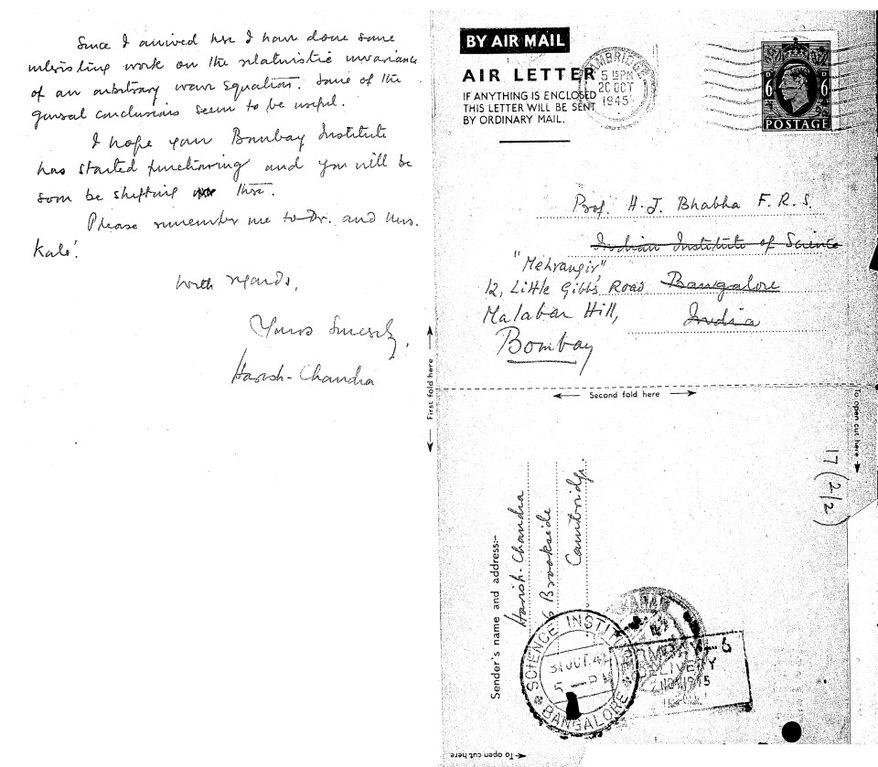 Since I arrived here I have done some
interesting work on the relativistic invariance
of an arbitrary wave equation. Some of the
general conclusions seem to be useful.
I hope your Bombay Institute
has started functioning and you will be
soon be shifting there.
Please remember me to Dr. and Mrs.
Kale'.
With regards,
Yours Sincerely,
Harish-Chandra
BY AIR MAIL
AIR LETTER
IF ANYTHING IS ENCLOSED
THIS LETTER WILL BE SENT
BY ORDINARY MAIL.
CAMBRIDGE
5 15PM
20 OCT
1945
6D 6D
POSTAGE
Prof. H. J. Bhabha F. R. S.
Indian Institute of Science
"Mehrangir"
12, Little Gibbs Road Bangalore
Malabar Hill, India
Bombay
First fold here
Second fold here
To open cut here
17(2/2)
Sender's name and address:-
Harish-Chandra
6 Brookside
Cambridge.
SCIENCE INSTITUTE
31 OCT. 45
5 - PM
BANGALORE
BOMBAY-6
DELIVERY
2 NOV 1945
To open cut here